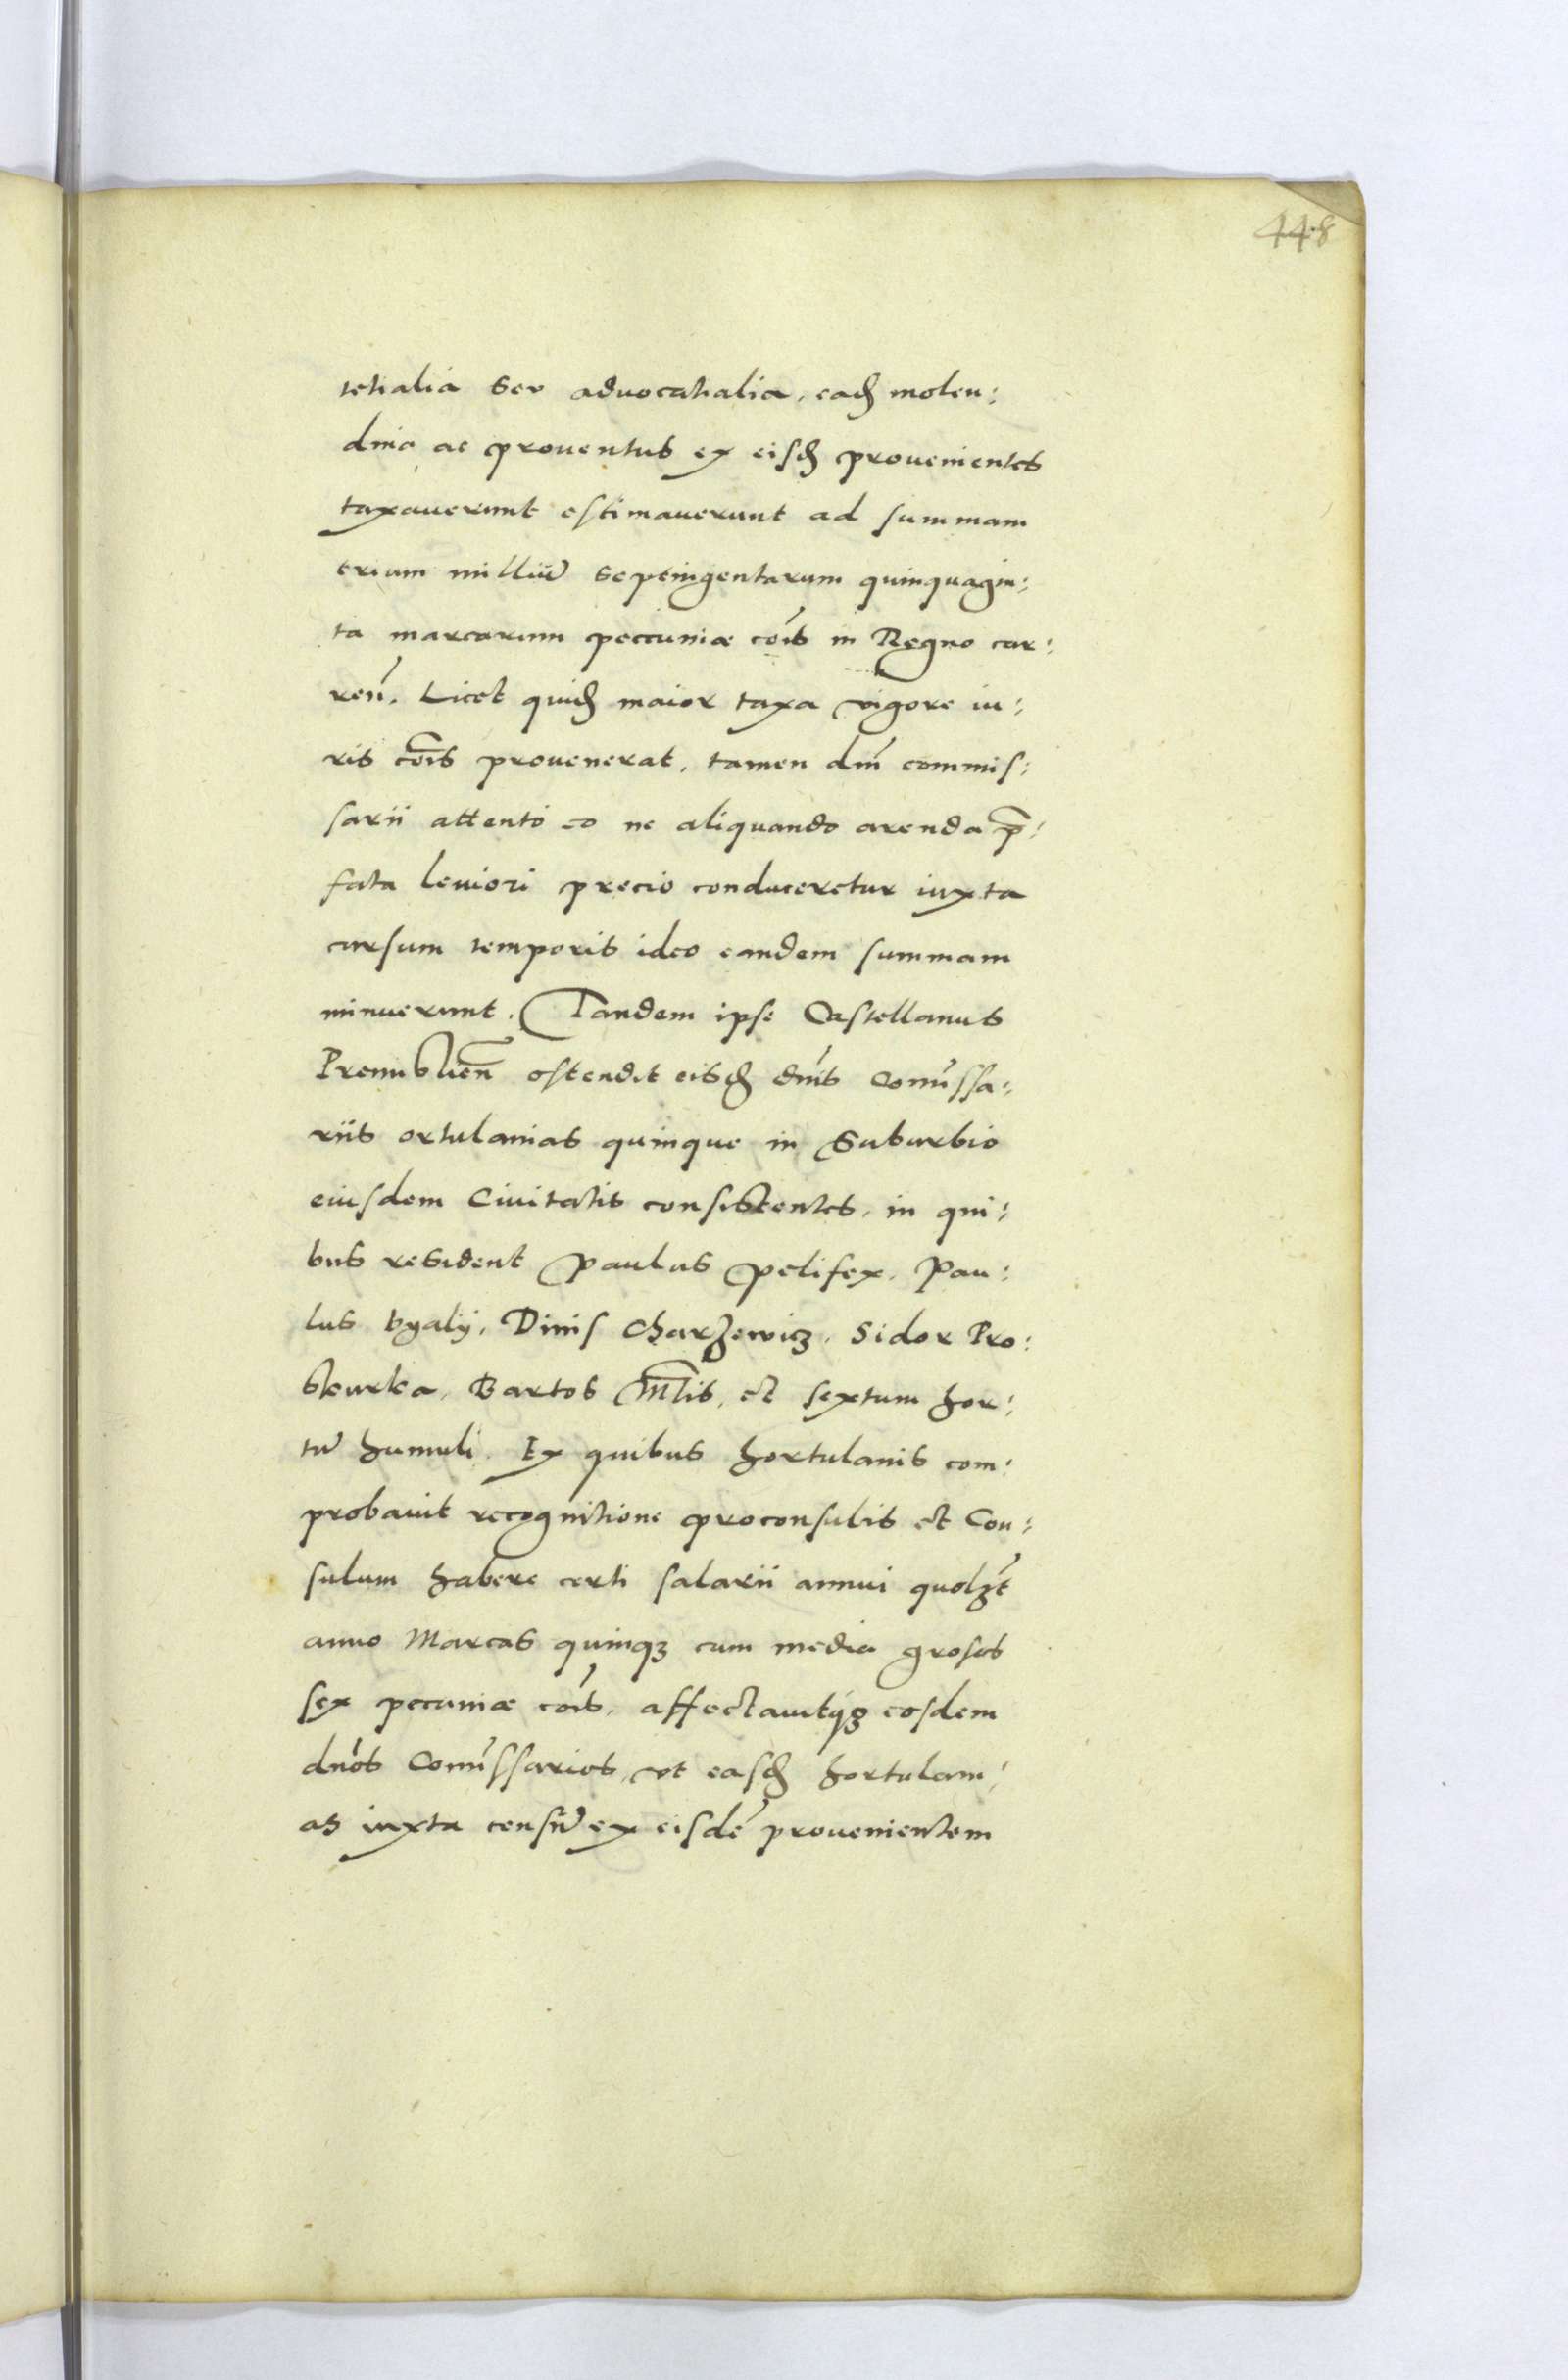 448
tetialia seu advocatialia, eadẽ molen:
dina ac prouentus ex eisdẽ prouenientes
taxauerunt estimauerunt ad summam
trium milliũ septingentarum quinquagin:
ta marcarum peccuniæ cõis in Regno cur:
ren̄. Licet quidẽ maior taxa vigore iu:
ris cõis prouenerat, tamen dnĩ commis:
sarii attento eo ne aliquando arenda p̄:
fata leuiori precio conduceretur iuxta
cursum temporis ideo eandem summam
minuerunt. Tandem ipse Castellanus
Premislien̄ ostendit eisdẽ dnĩs Comissa:
riis ortulanias quinque in Suburbio
eiusdem Ciuitatis consistentes, in qui:
bus resident Paulus pelifex, Pau:
lus byalÿ, Dinis Charzewicz, Sidor Pro:
skurka, Bartos et sextum hor:
tũ humuli. Ex quibus hortulanis com:
probauit recognitione proconsulis et Con:
sulum habere certi salarii annui quolz̃t
anno Marcas quinqz cum media grosos
sex pecuniæ cõis, affectauitqz eosdem
dnõs Comissarios, vt easdẽ hortulani:
as iuxta censũ ex eisdẽ prouenientem